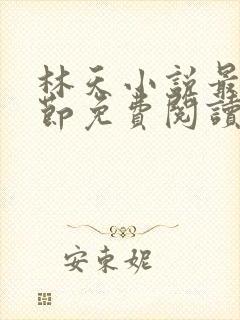 林天小說最
節免費閱讀
安東妮